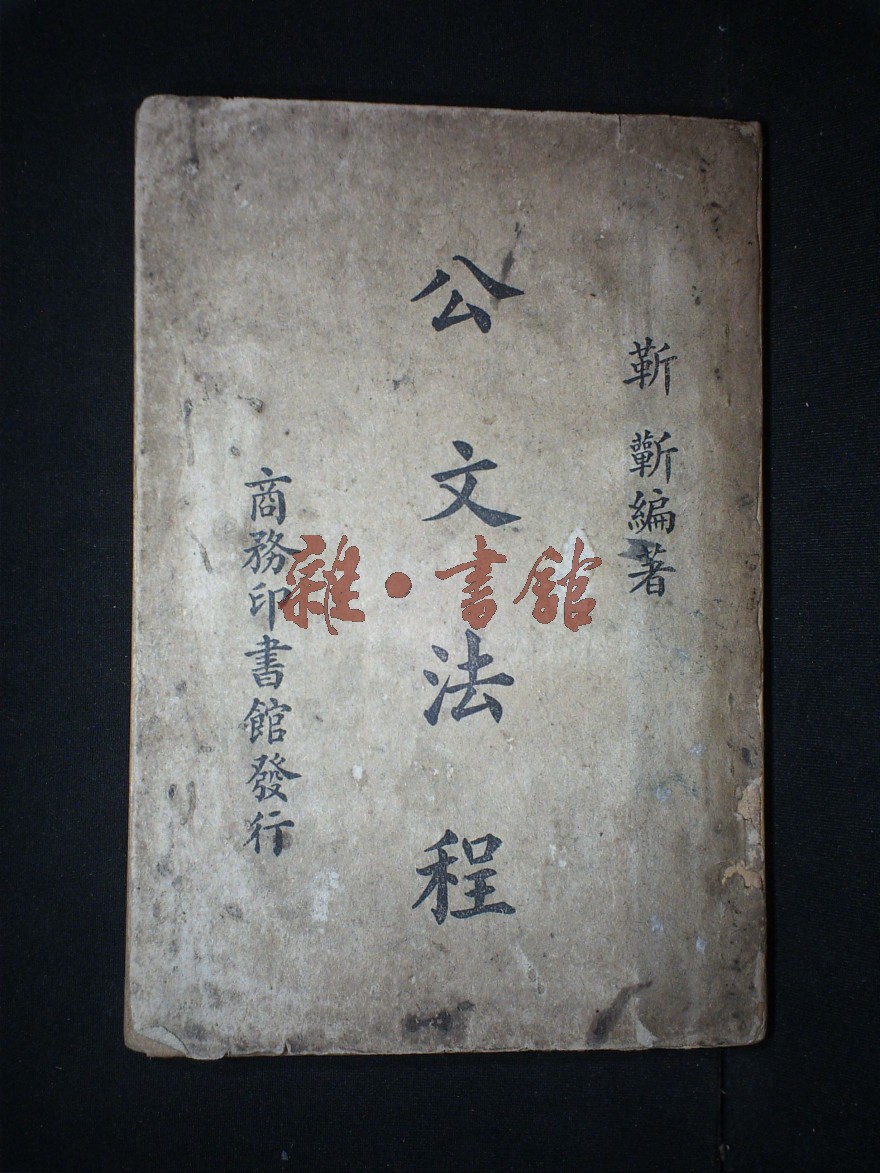 靳編著
公文法程
商務印書館發行
雜·書館